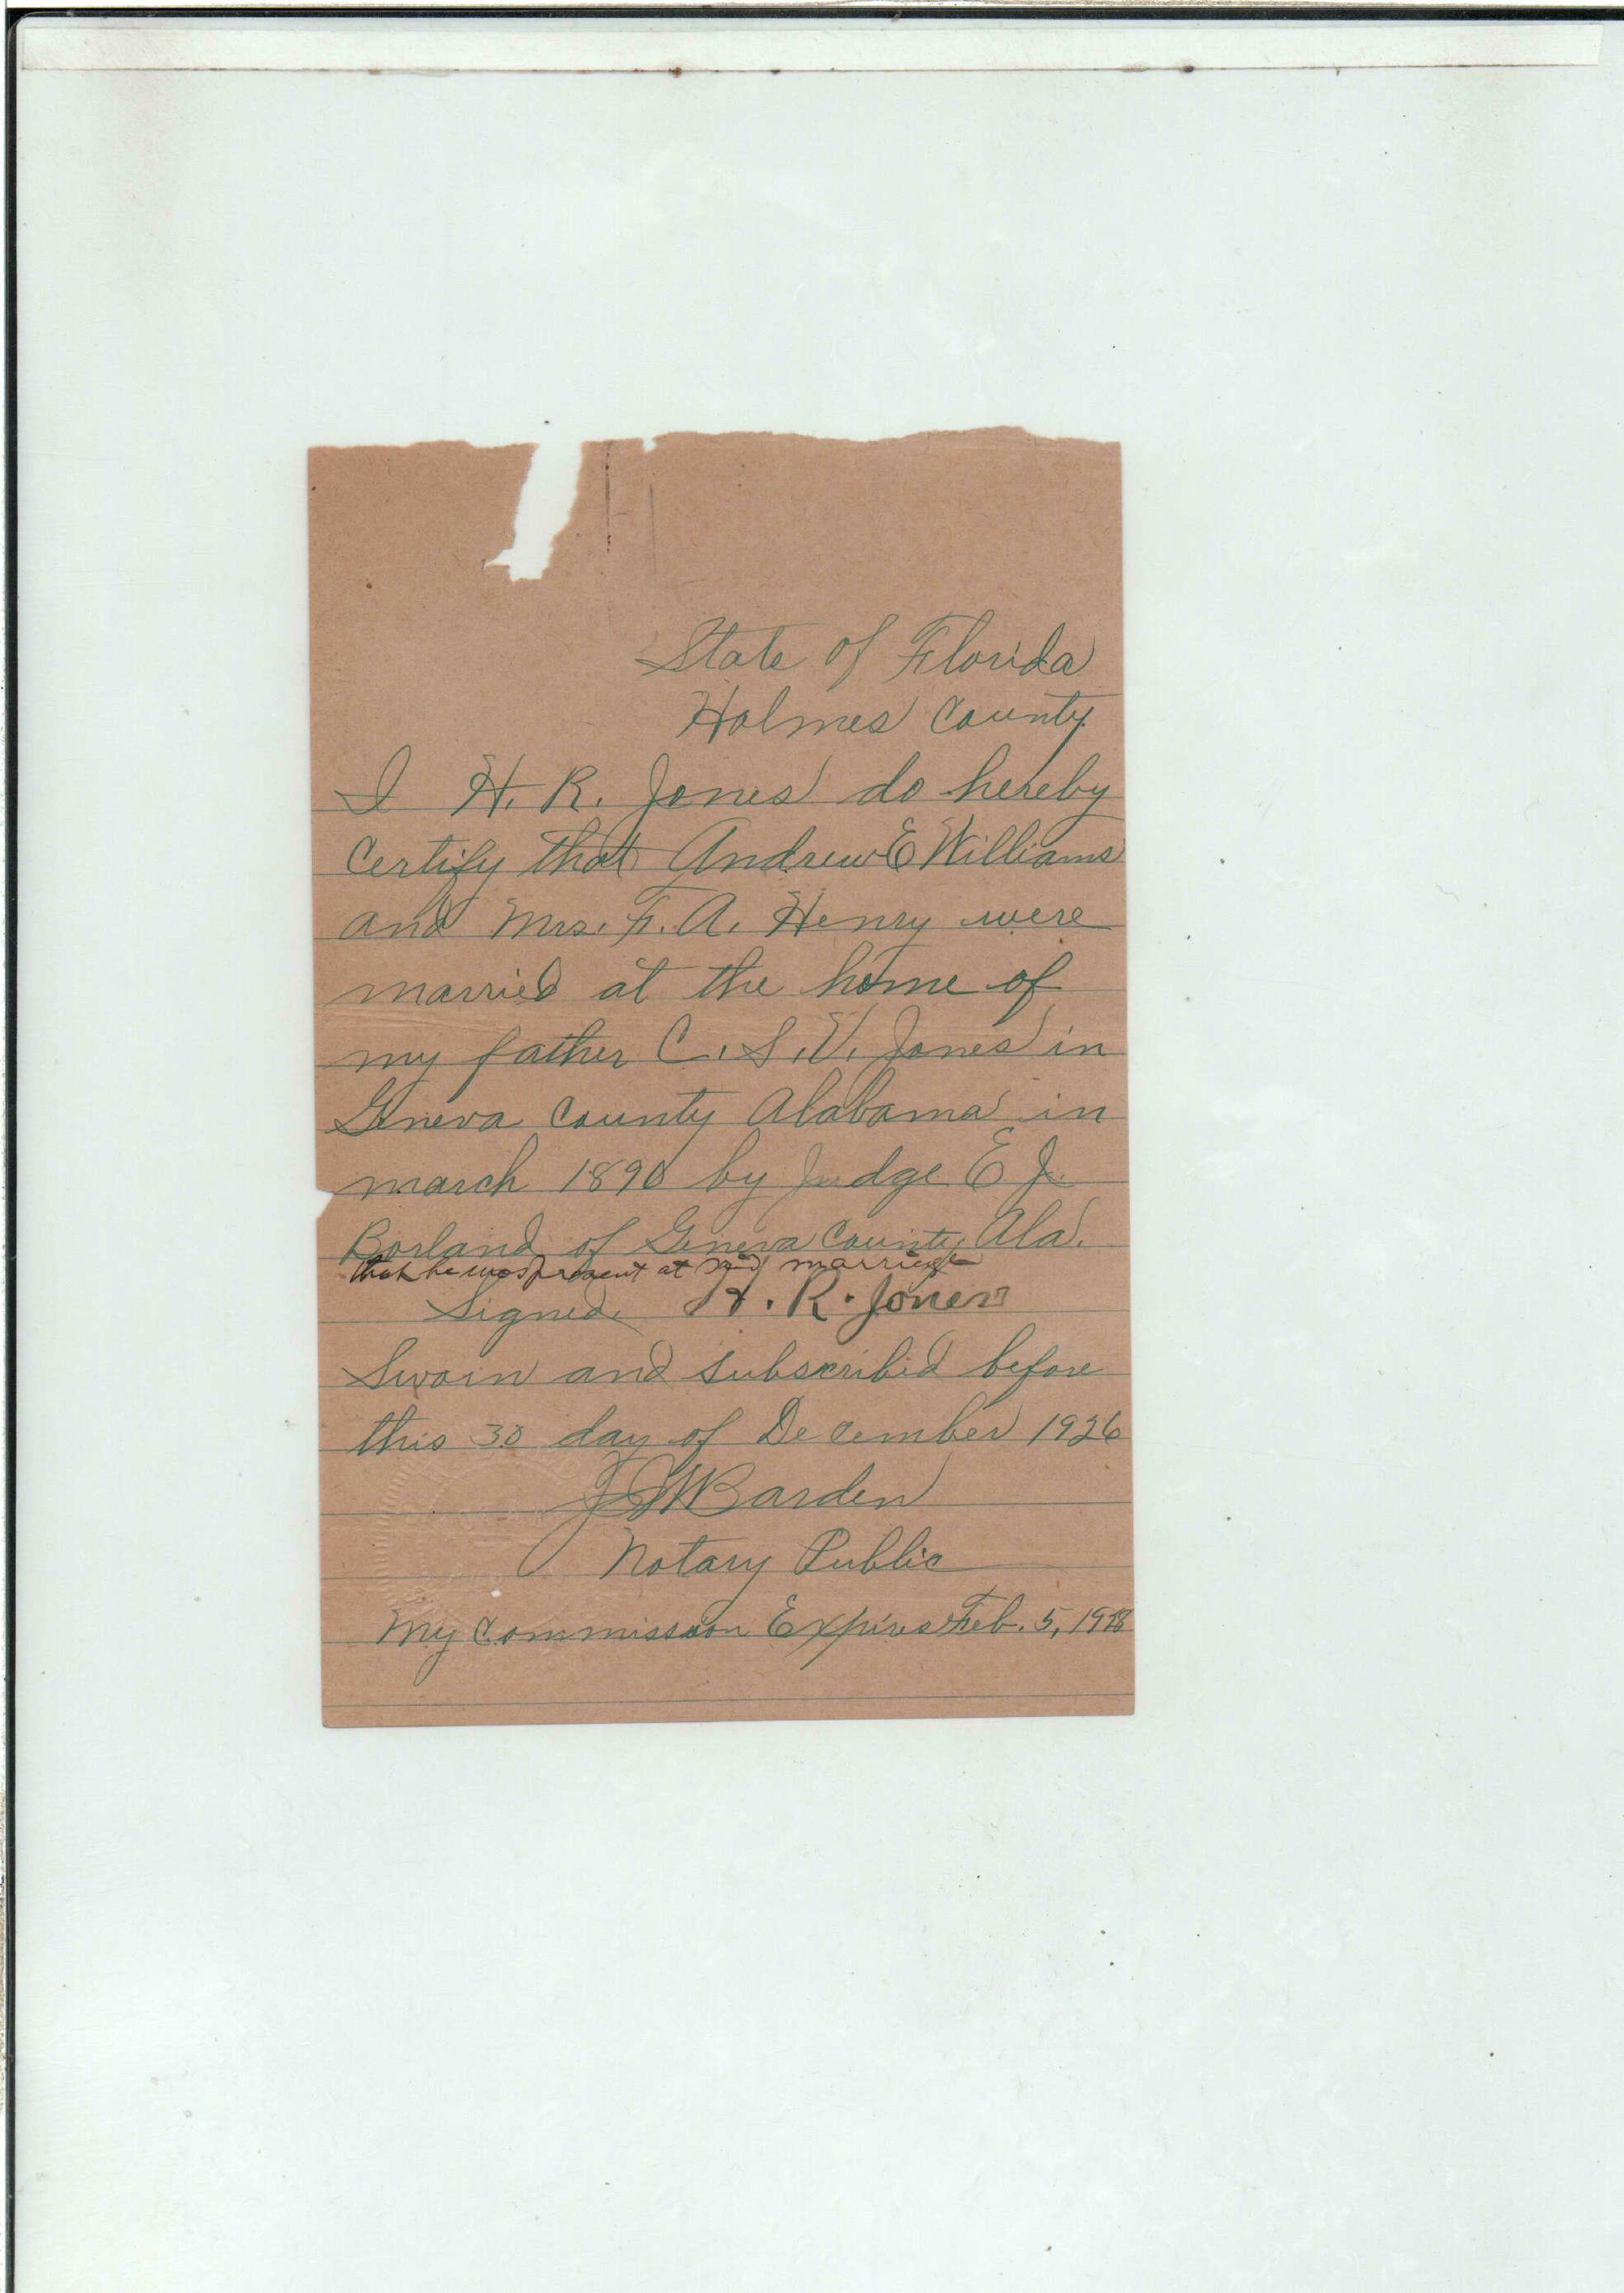 State of Florida
Holmes County
I H. R. Jones do hereby
certify that Andrew E Williams
and Mrs. F. A. Henry were
married at the home of
my father C. S. V. Jones in
Geneva County Alabama in
march 1890 by Judge E J.
Borland of Geneva County, Ala.
that he was present at said marriage
Signed. H. R. Jones
Sworn and subscribed before
this 30 day of December 1926
Barden
Notary Public
My Commission Expires Feb. 5, 1928